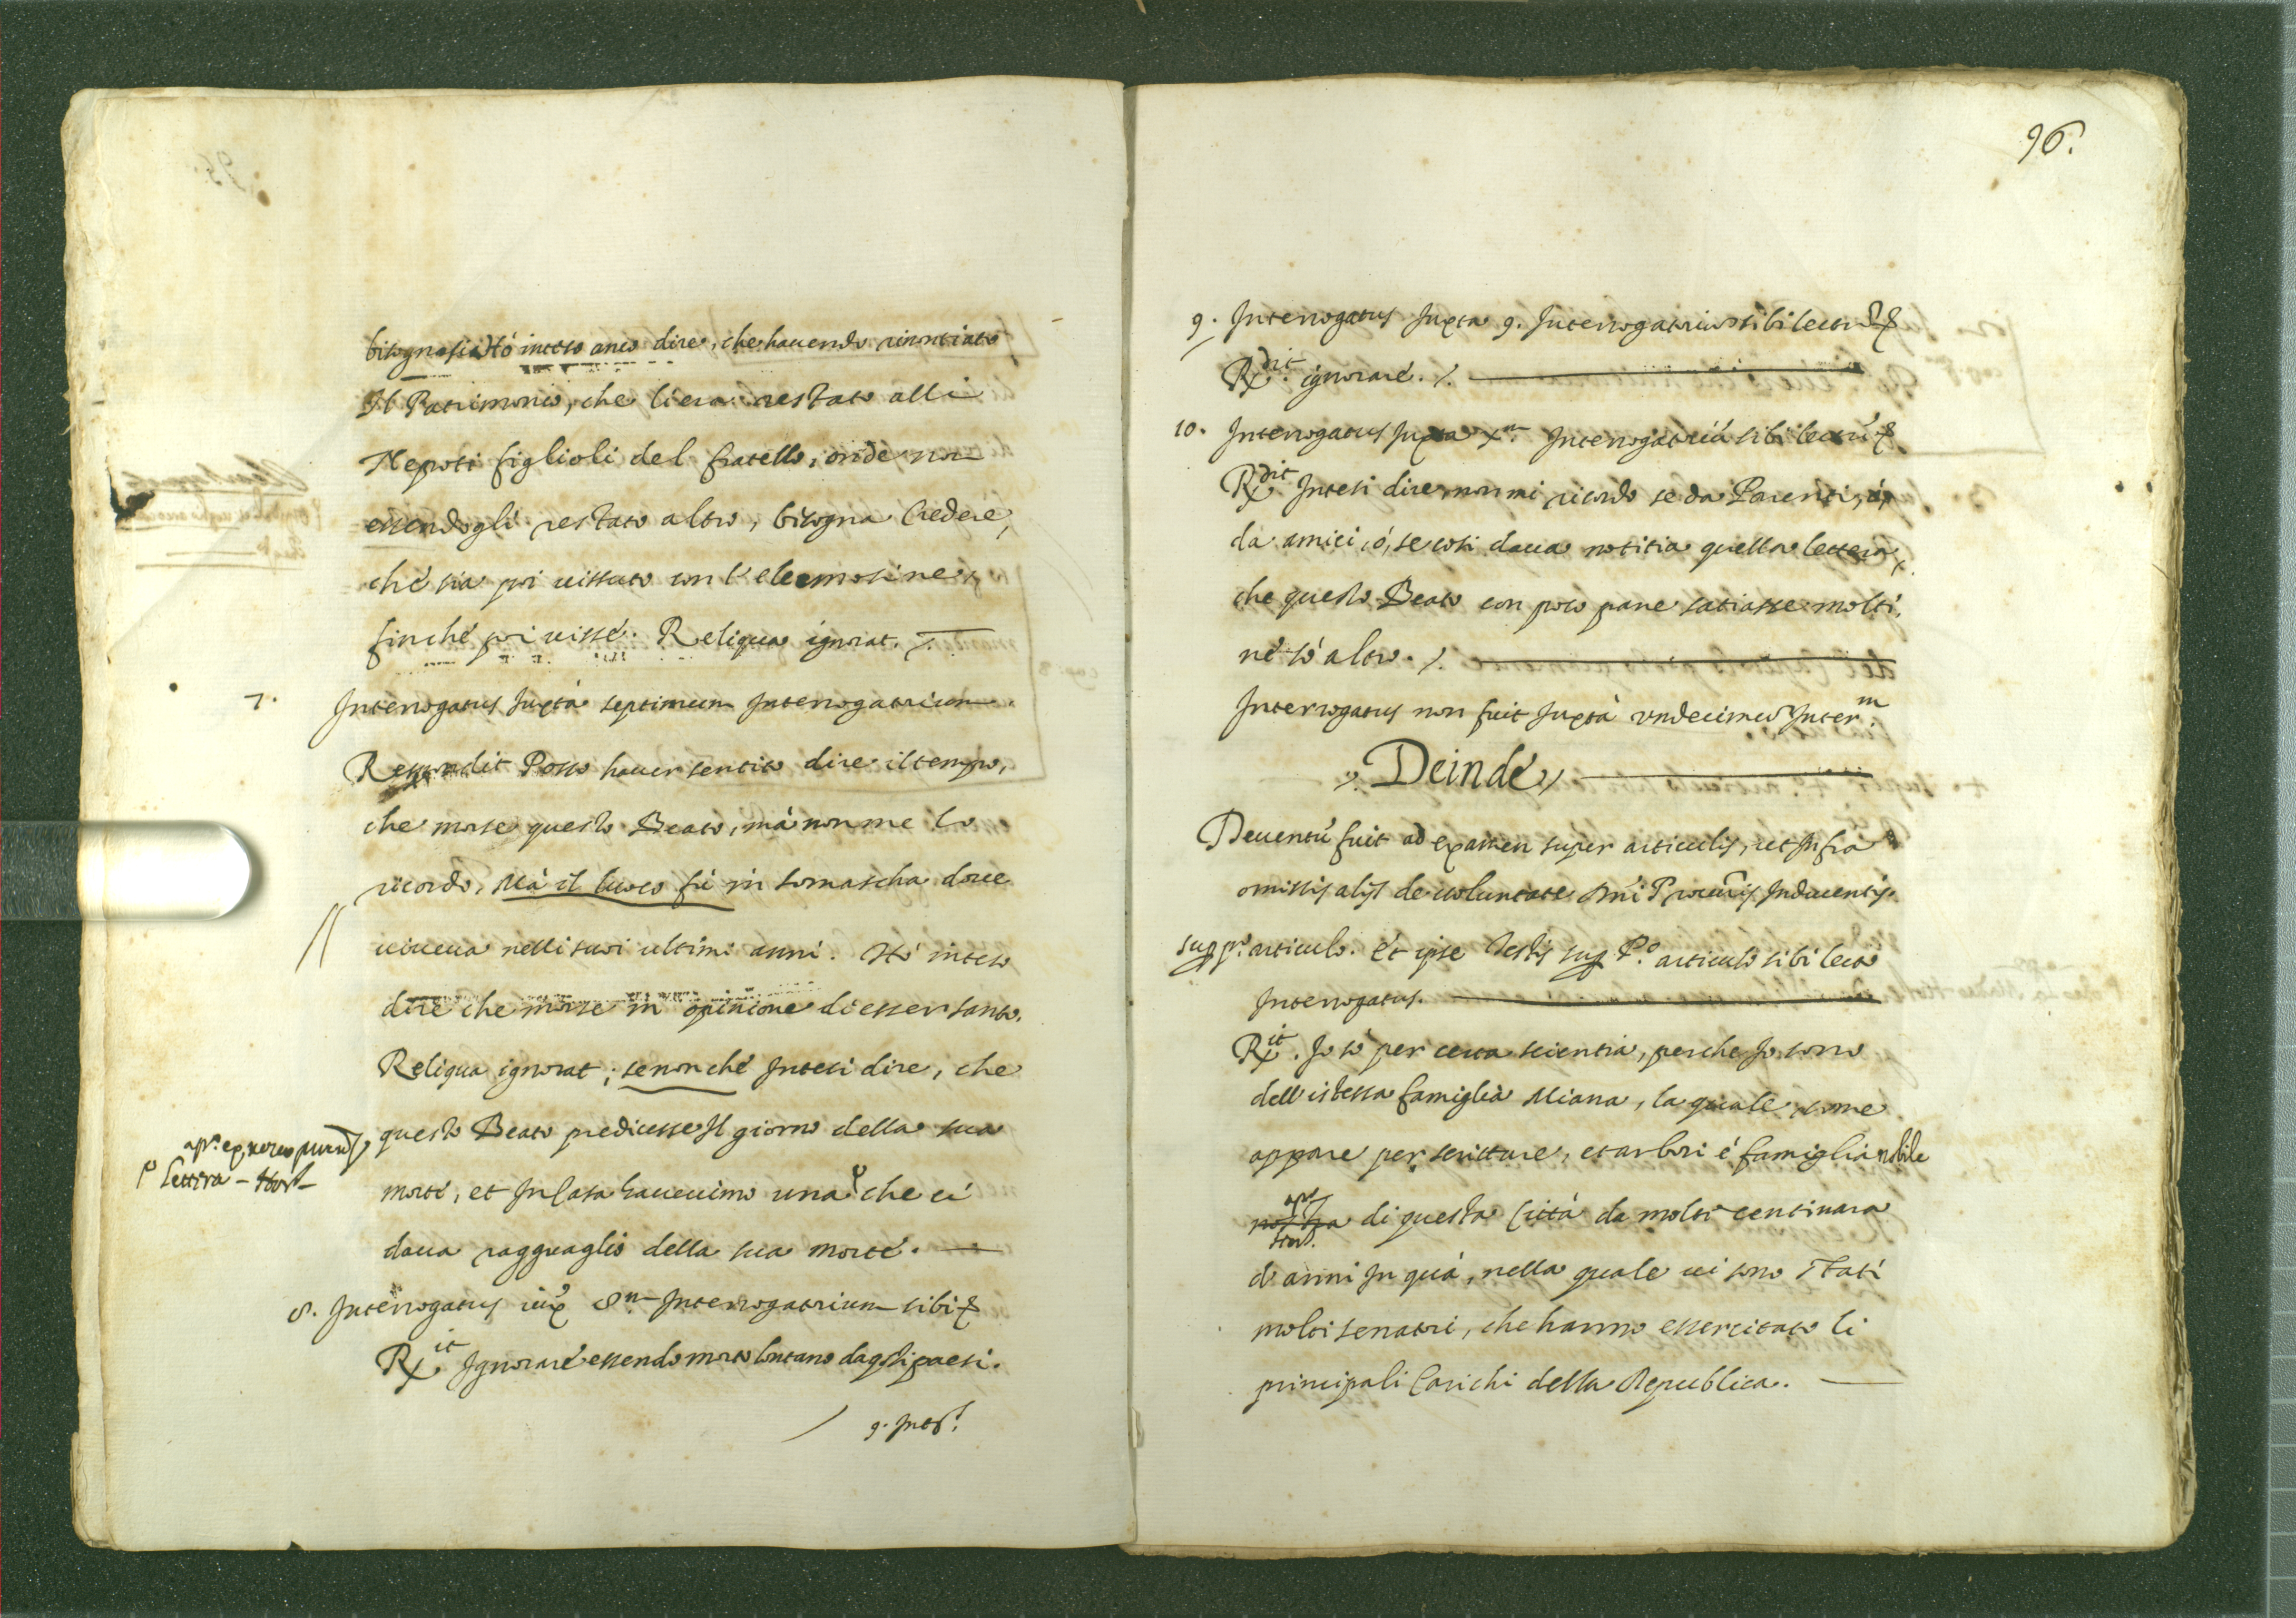 bisognosi. Hò inteso anco dire, che havendo rinontiato
Il Patrimonio, che li era restato alli
Nepoti figlioli del fratello, onde non
essendogli restato altro, bisogna Credere,
che sia poi vissuto con l'elemosine,
finché poi visse. Reliqua ignorat. /.
7. Interrogatus Juxtà septimum Interrogatorium.
Respondit Posso haver sentito dire il tempo,
che morse questo Beato, mà non me lo
ricordo, Mà il luoco fù in Somascha dove
viveva nelli suoi ultimi anni. Hò inteso
dire che morse in opinione di esser santo.
Reliqua ignorat; se non ché Intesi dire, che
questo Beato predicesse Il giorno della sua
lettera
morte, et In Casa havevimo una che ci
dava ragguaglio della sua morte.
8. Interrogatus iux 8.m Interrogatorium sibi &
Rx.it Ignorare essendo morto lontano da qsti paesi.
9. Inter!
96.
9. Interrogatus Juxta 9. Interrogatorium sibi lectu &
Rx.dit ignorare. /.
10. Interrogatus Juxta X.m Interrogatoriu sibi lectu &
Rx.dit Intesi dire, non mi ricordo se da Parenti, ò,
da amici, ò, se così dava notitia quella lettera,
che questo Beato con poco pane satiasse molti,
nè sò altro. /.
Interrogatus non fuit Juxtà undecimu Inter.m
/. Deinde /
Deventu fuit ad examen super articulis, ut Infra
omissis alijs de voluntate Dni Procuris Inducentis.
sup p.o articulo. Et ipse Testis sup P.o articulo sibi lecto
Interrogatus.
Rx.it. Io sò per certa scientia, perche Io sono
dell'istessa famiglia Miana, la quale, come
appare per scritture, et arbori é famiglia nobile
nostra di questa Città da molti centinara
d'anni In quà, nella quale vi sono stati
molti senatori, che hanno essercitato li
principali Carichi della Republica.